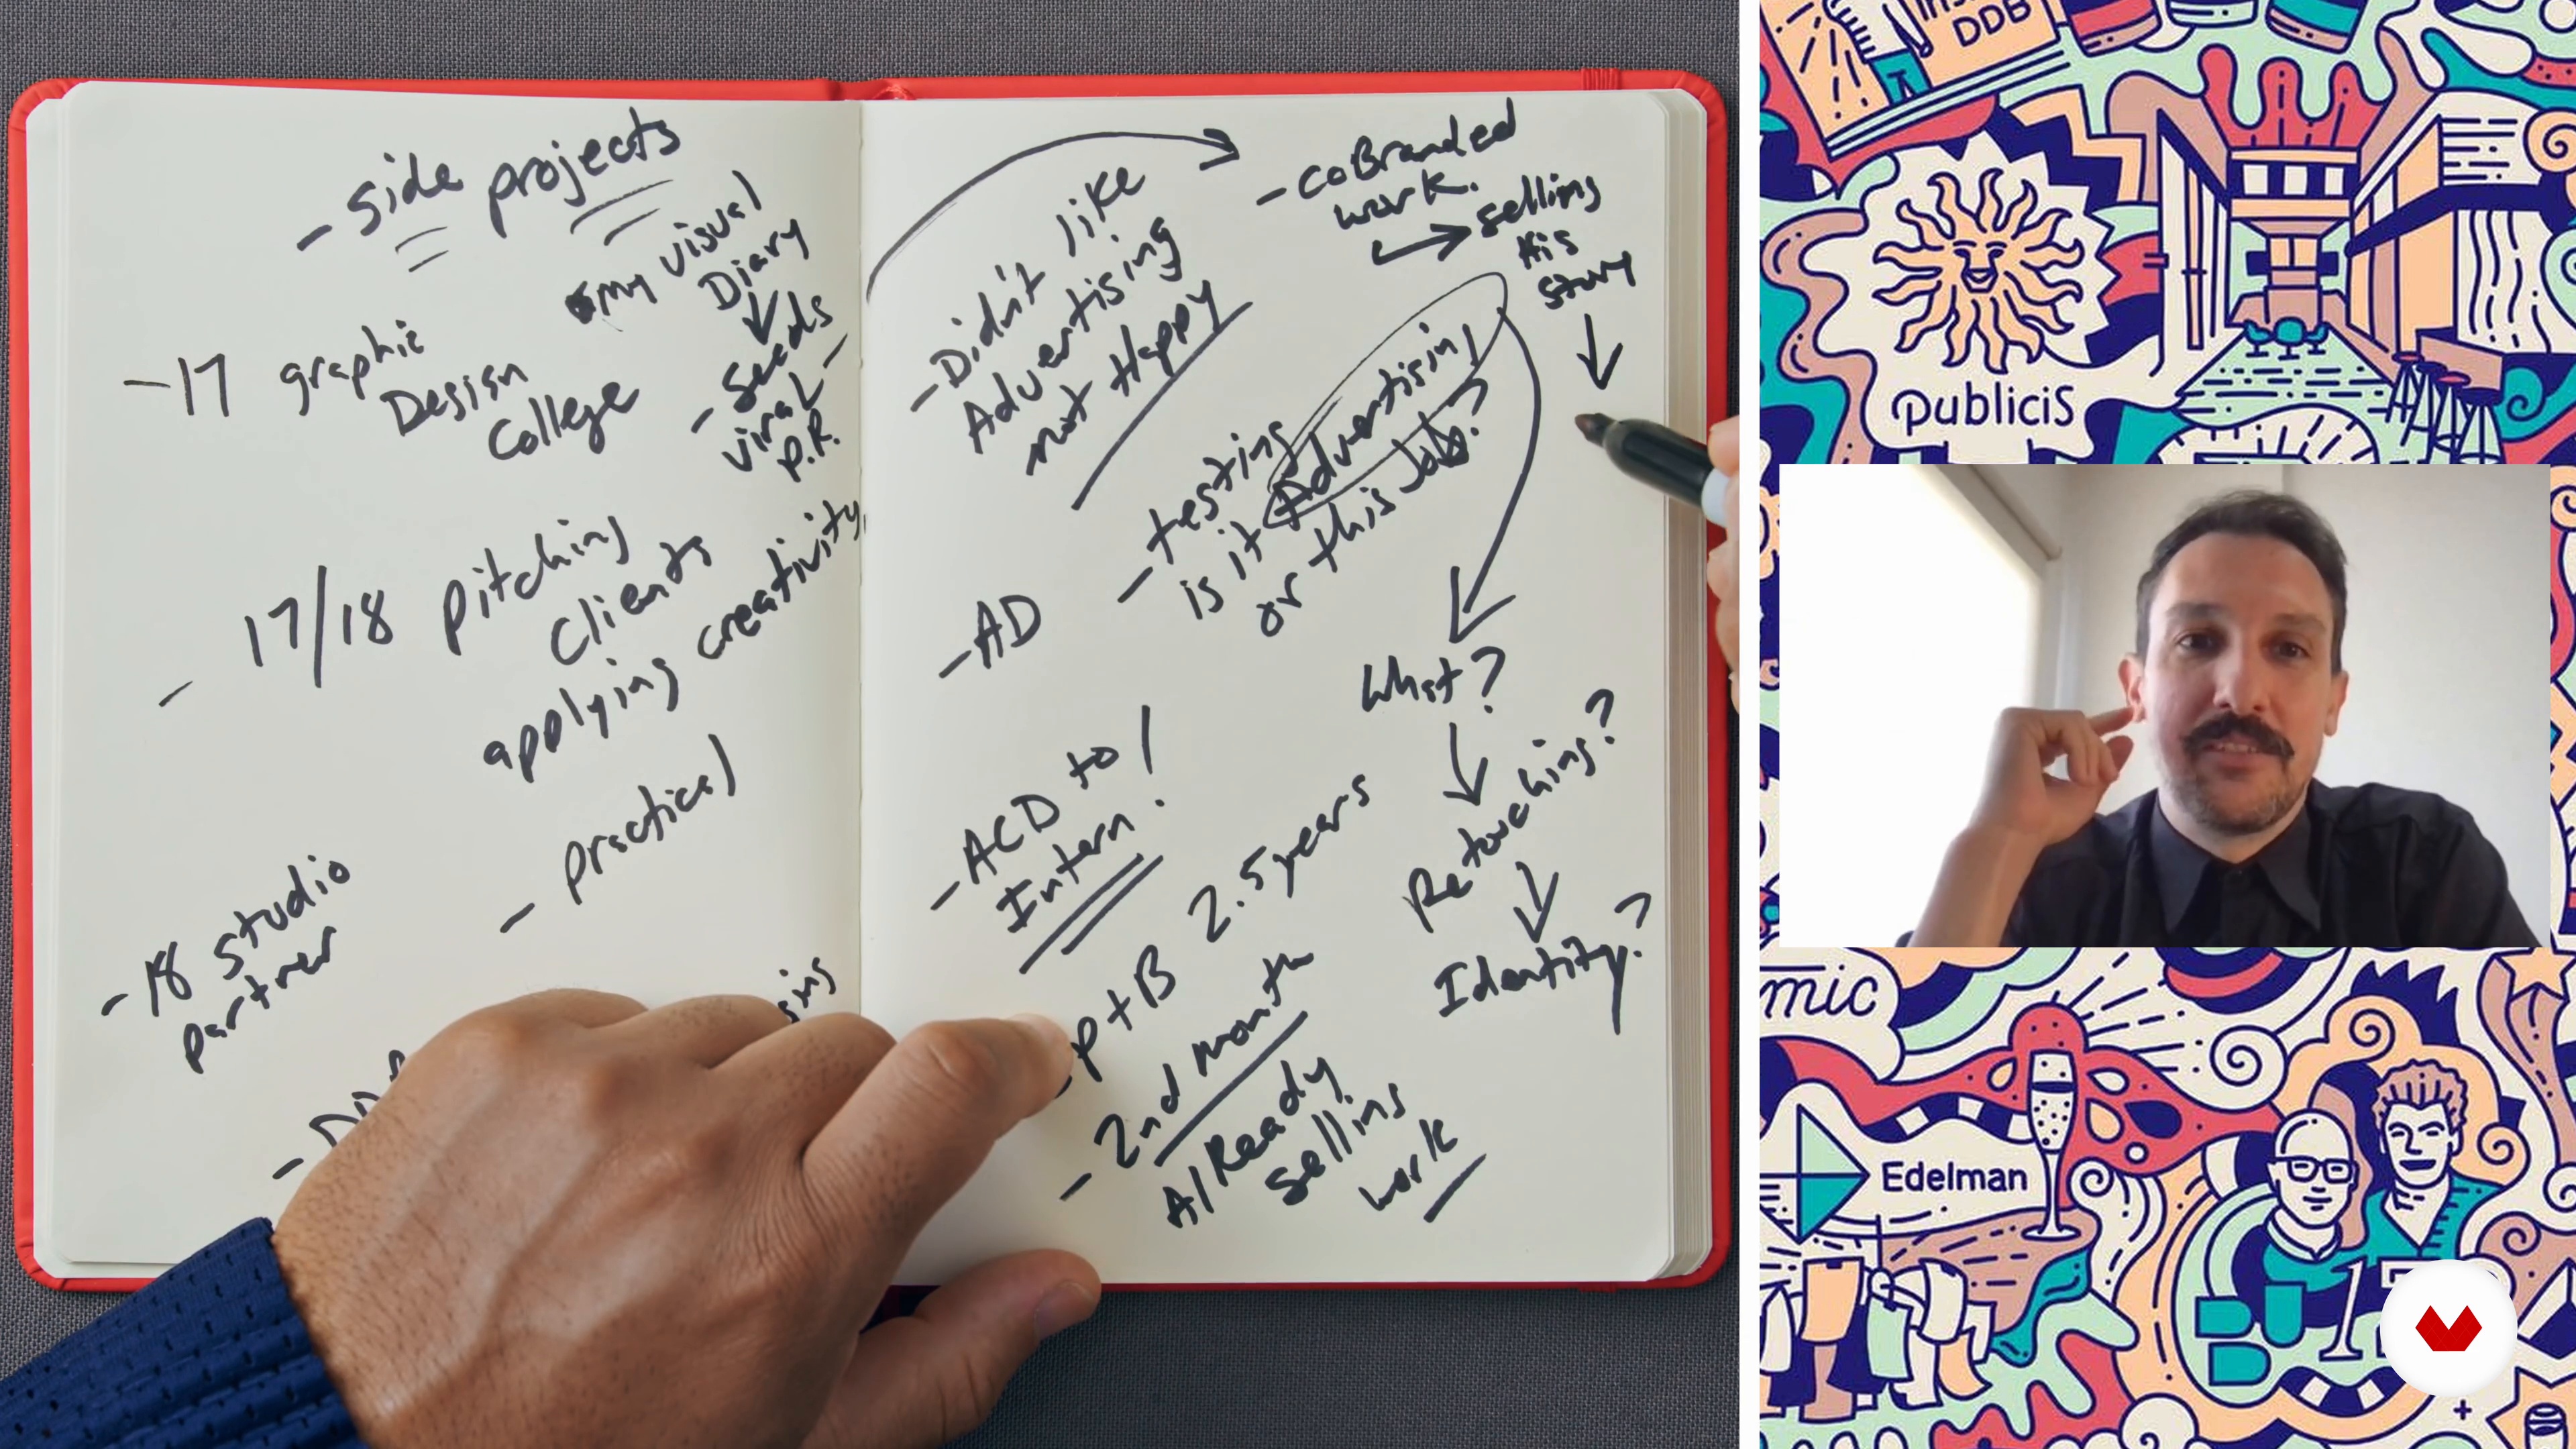 - side projects
my visual
Diary
- Seeds -
viral
P.R.
- 17 graphic
Design
College
- 17/18 pitching
clients
applying creativity
- practical
- 18 studio
partner
- Didn't like
Advertising
not Happy
- CoBranded
work.
selling
His
story
- testing
is it Advertising?
or this Job?
- AD
What?
Retouching?
Identity?
- ACD to 1
Intern!
p+B 2.5 years
- 2nd month
AlReady
selling
work
DDB
publicis
mic
Edelman